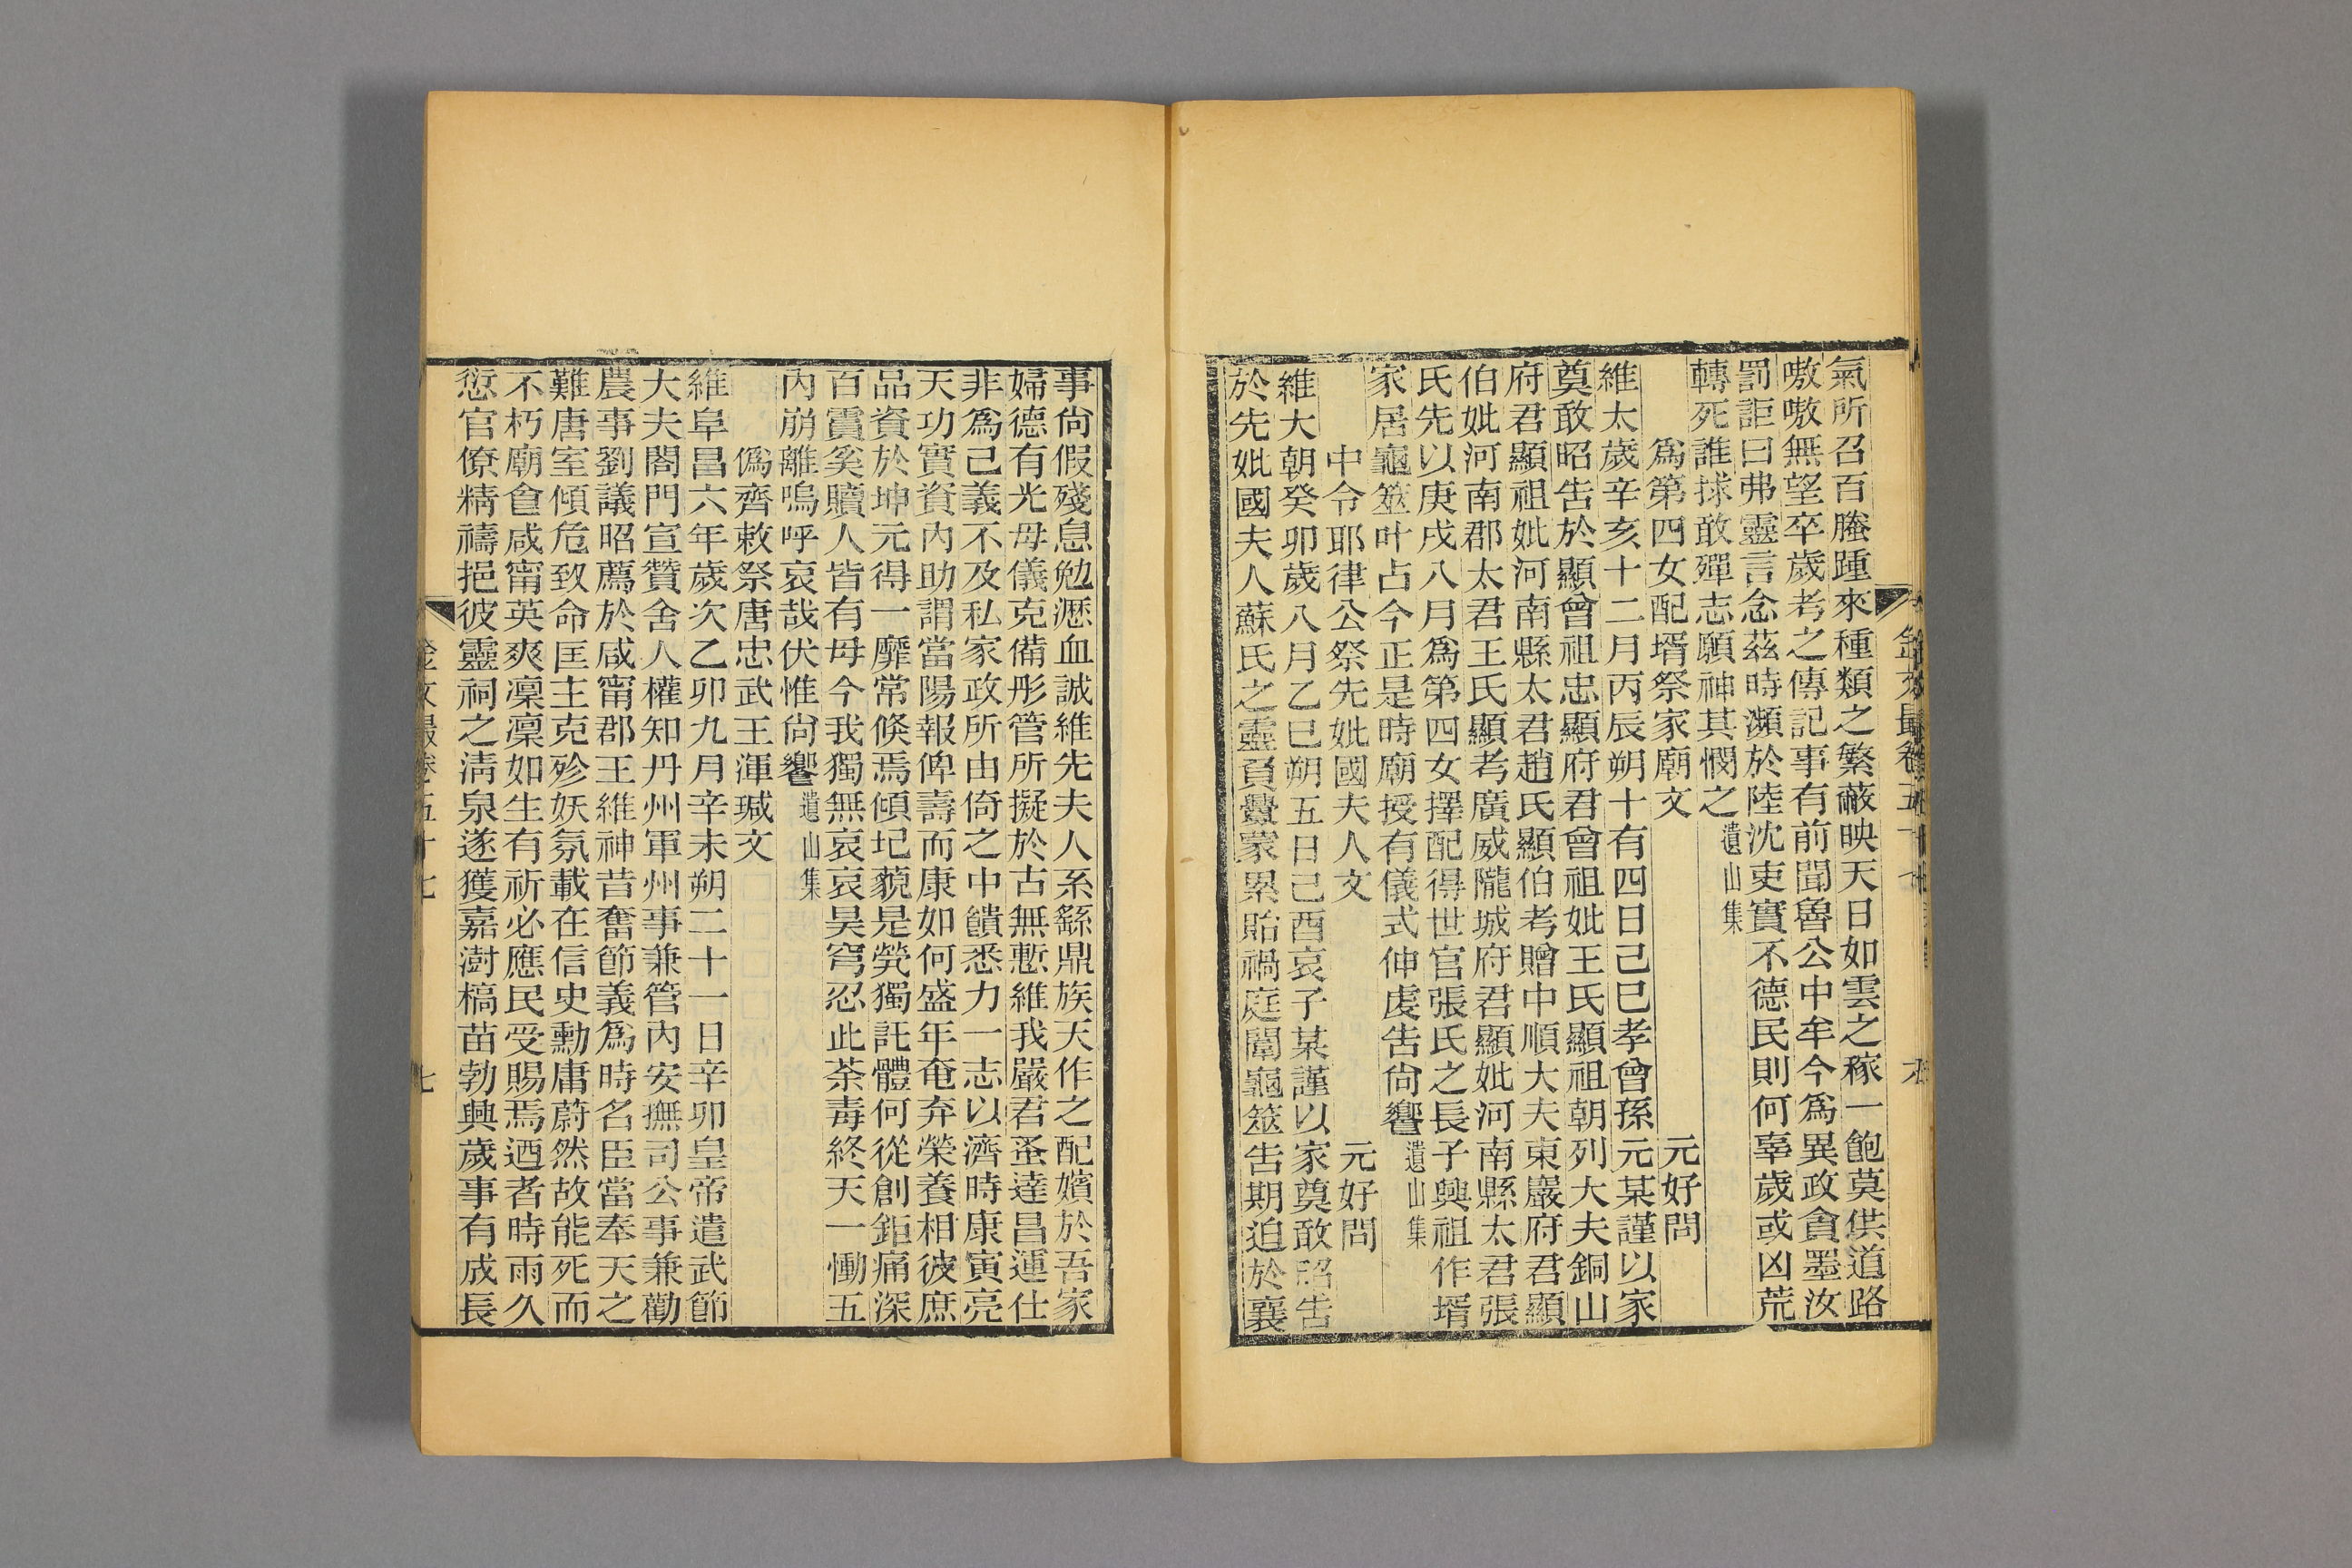 氣所召百螣踵來種類之繁蔽映天日如雲之稼一飽莫供道路
嗷嗷無望卒歲考之傳記事有前聞魯公中牟今爲異政貪墨汝
罰詎曰弗靈言念茲時瀕於陸沈吏實不德民則何辜歲或凶荒
轉死誰捄敢殫志願神其憫之遺山集
爲第四女配壻祭家廟文 元好問
維太歲辛亥十二月丙辰朔十有四日己巳孝曾孫元某謹以家
奠敢昭告於顯曾祖忠顯府君曾祖妣王氏顯祖朝列大夫銅山
府君顯祖妣河南縣太君趙氏顯伯考贈中順大夫東嚴府君顯
伯妣河南郡太君王氏顯考廣威隴城府君顯妣河南縣太君張
氏先以庚戌八月爲第四女擇配得世官張氏之長子興祖作壻
家居龜筮叶占今正是時廟授有儀式伸虔告尙饗遺山集
中令耶律公祭先妣國夫人文 元好問
維大朝癸卯歲八月乙巳朔五日己酉哀子某謹以家奠敢昭告
於先妣國夫人蘇氏之靈負釁蒙累貽禍庭闈龜筮告期迫於襄
事尙假殘息勉瀝血誠維先夫人系緜鼎族天作之配嬪於吾家
婦德有光母儀克備彤管所擬於古無慙維我嚴君蚤達昌運仕
非爲己義不及私家政所由倚之中饋悉力一志以濟時康寅亮
天功實資內助謂當陽報俾壽而康如何盛年奄弃榮養相彼庶
品資於坤元得一靡常倏焉傾圮藐是煢獨託體何從創鉅痛深
百霣奚贖人皆有母今我獨無哀哀昊穹忍此荼毒終天一慟五
內崩離嗚呼哀哉伏惟尙饗遺山集
僞齊敕祭唐忠武王渾瑊文
維阜昌六年歲次乙卯九月辛未朔二十一日辛卯皇帝遣武節
大夫閤門宣贊舍人權知丹州軍州事兼管內安撫司公事兼勸
農事劉議昭薦於咸甯郡王維神昔奮節義爲時名臣當奉天之
難唐室傾危致命匡主克殄妖氛載在信史勳庸蔚然故能死而
不朽廟食咸甯英爽凜凜如生有祈必應民受賜焉迺者時雨久
愆官僚精禱挹彼靈祠之淸泉遂獲嘉澍槁苗勃興歲事有成長
金文最卷五十七 七